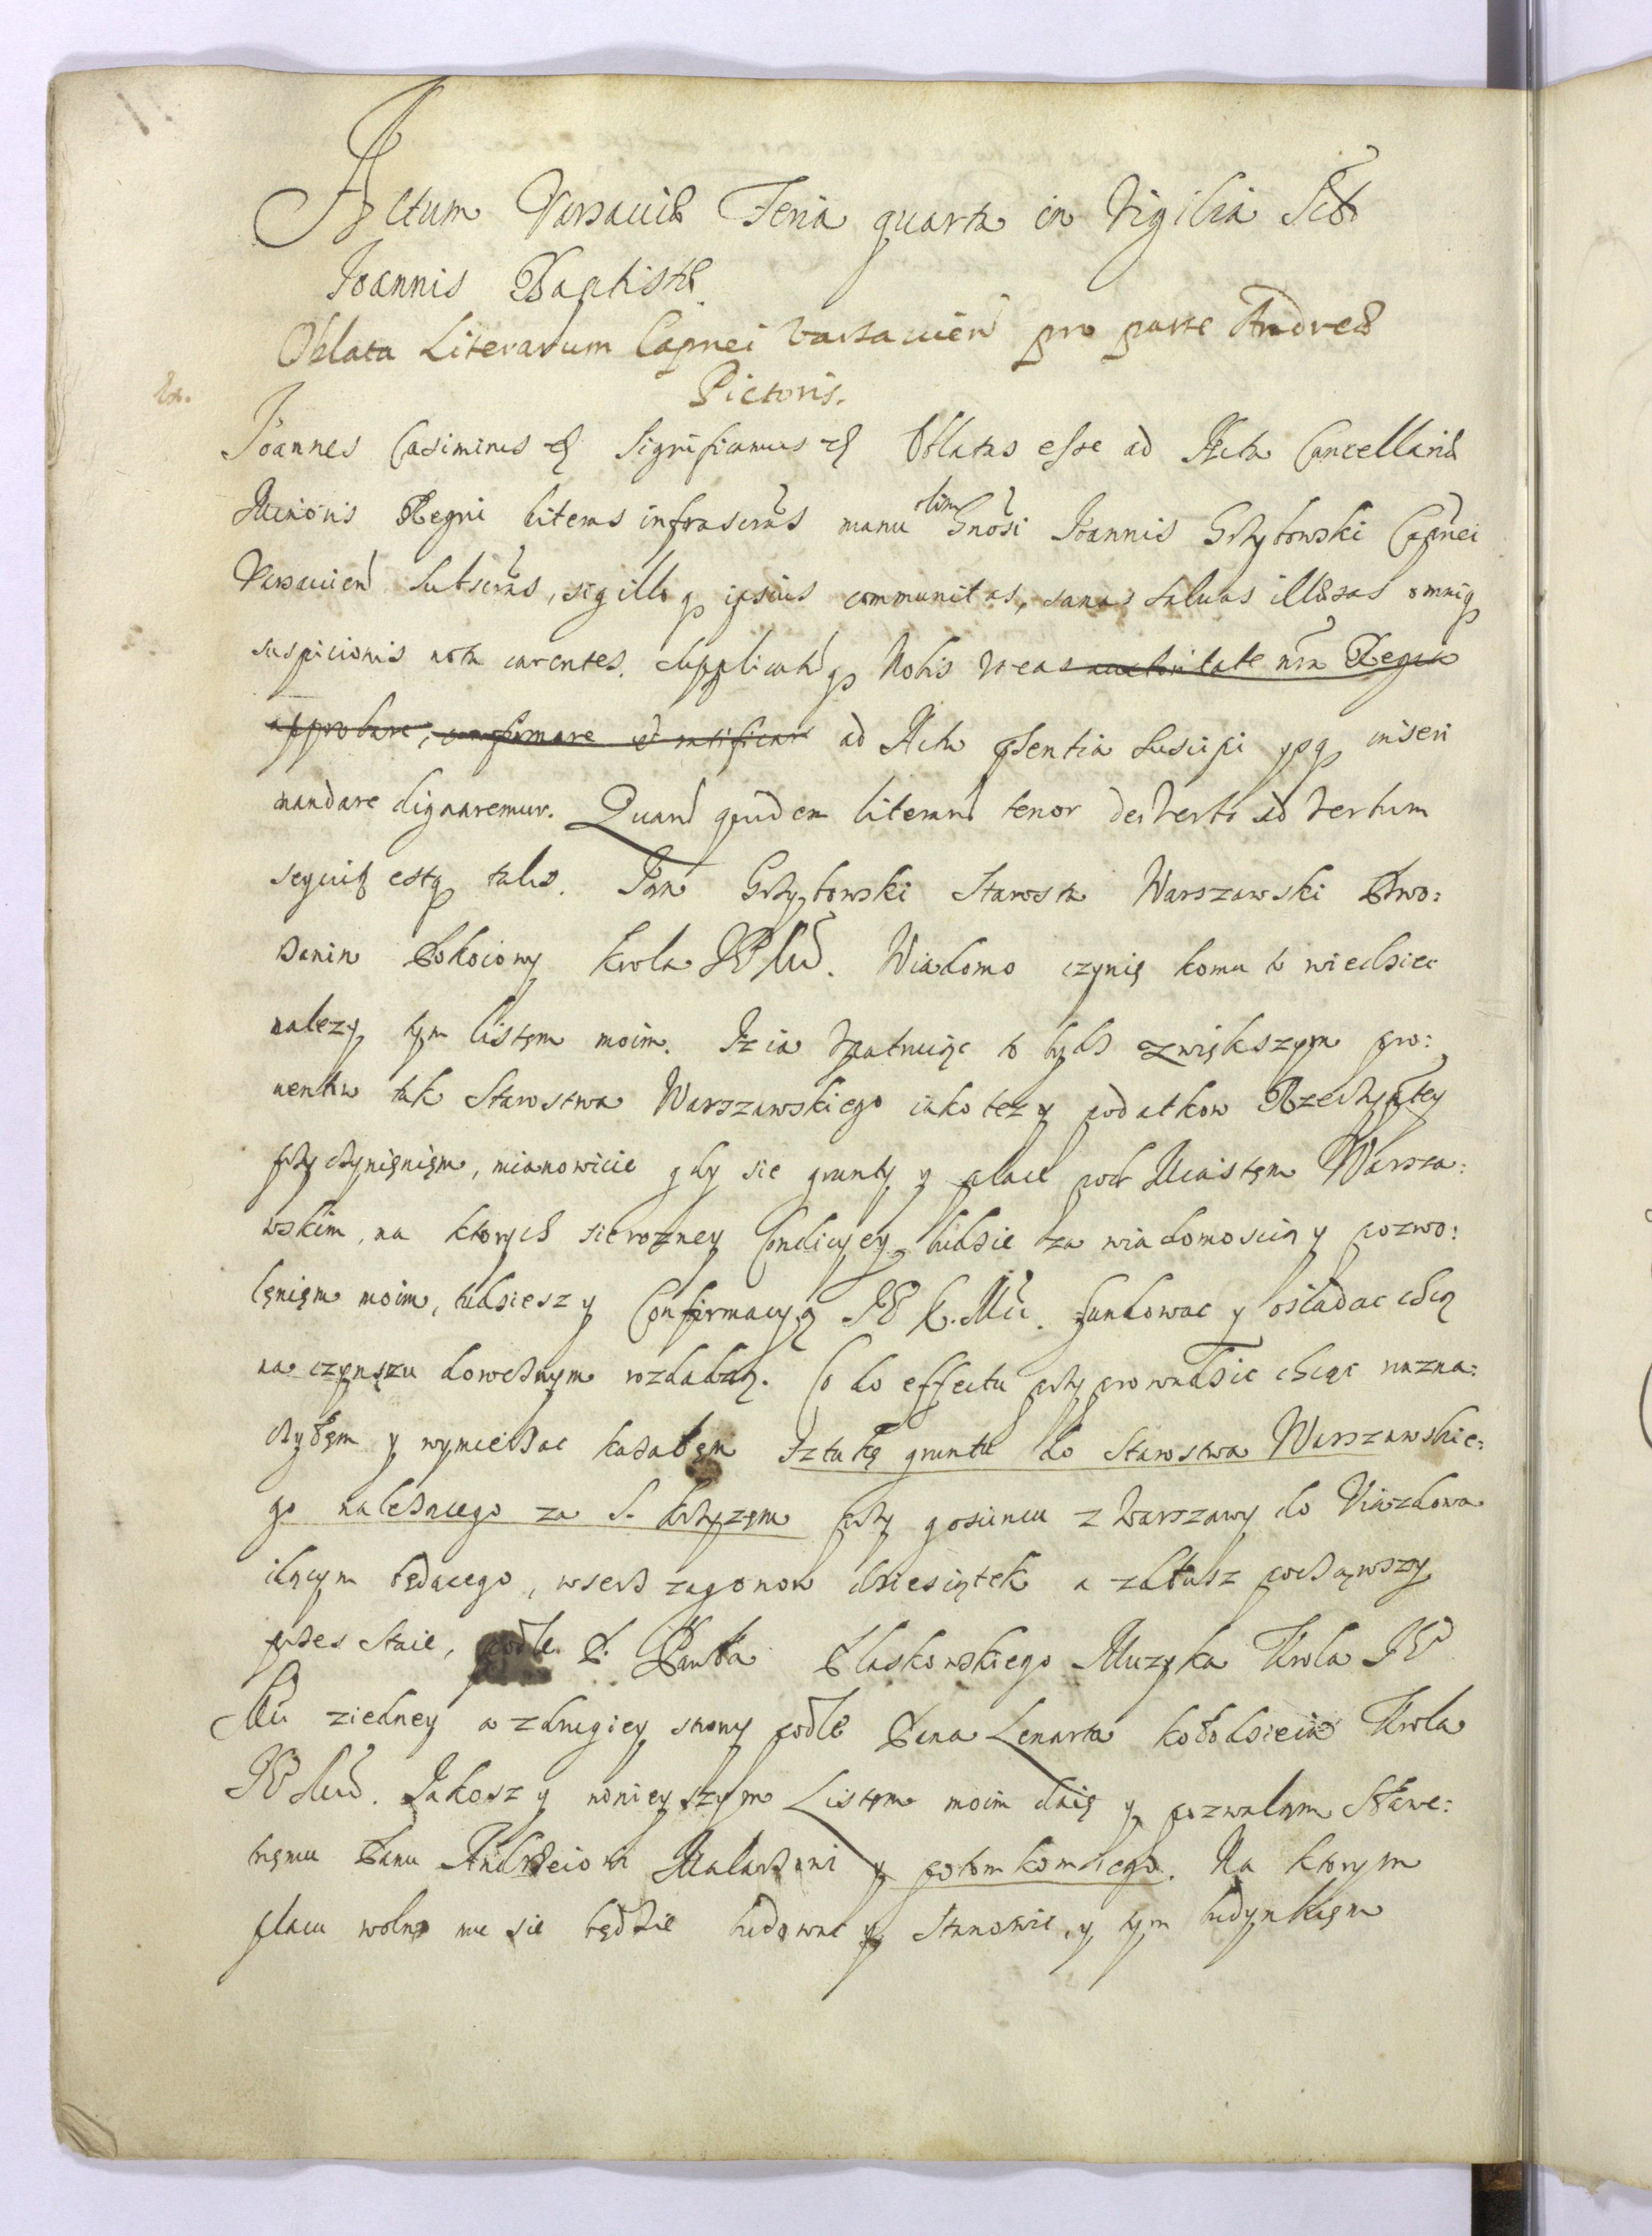 Actum Varsauiæ Feria quarta in Vigilia Scti
Joannis Baptistæ.
Oblata Literarum Capnei Varsauien pro parte Andreæ
Pictoris.
Joannes Casimirus etc Significamus etc Oblatas esse ad Acta Cancellariæ
Minoris Regni literas infrascras manu olim Gnosi Joannis Grzybowski Capnei
Varsauien subscras, sigilloq ipsius communitas, sanas saluas illæsas omniq
suspicionis nota carentes. Supplicatuq Nobis ut eas auctoritate nra Regia
approbare, confirmare et ratificare ad Acta psentia suscipi ysq inseri
mandare dignaremur. Quaru quidem literaru tenor de verbo ad verbum
sequit estq talis. Jan Grzybowski Starosta Warszawski Dwo:
rzanin Pokoiowy Krola JE Mci. Wiadomo czynię komu to wiedziec
nalezy tym listęm moim. Iz ia vpatruiąc to bydz zwiększym pro:
uentow tak Starostwa Warszawskiego iako tez y podatkow Rzeczyptey
przyczynięnięm, mianowicie gdy sie grunty y place pod Miastęm Warsza:
wskim, na ktorych sie rozney Condicyey ludzie za wiadomoscią y pozwo:
lęnięm moim, tudziesz y Confirmacyą JE K. Mci. fundowac y osiadac chcą
na czynszu dorocznym rozdadzą. Co do effectu przyprowadzic chcąc nazna:
czyłęm y wymierzac kazałęm sztukę gruntu do Starostwa Warszawskie:
go nalezącego za S. Krzyzęm przy goscincu z Warszawy do Viazdowa
idącym będącego, wszerz zagonow dziesiątek a zdłusz począwszy
przes staie, podle P. Pawła Płaskowskiego Muzyka Krola JE
Mci ziedney a zdrugiey strony podle Pana Lenarta kołodzieia Krola
JE Mci. Jakosz y ninieyszym Listęm moim daię y pozwalam Sławe:
tnęmu Panu Andrzeiowi Malarzowi y potomkom iego. Na ktorym
placu wolno mu sie będzie budowac y stanowic, y tym budynkięm